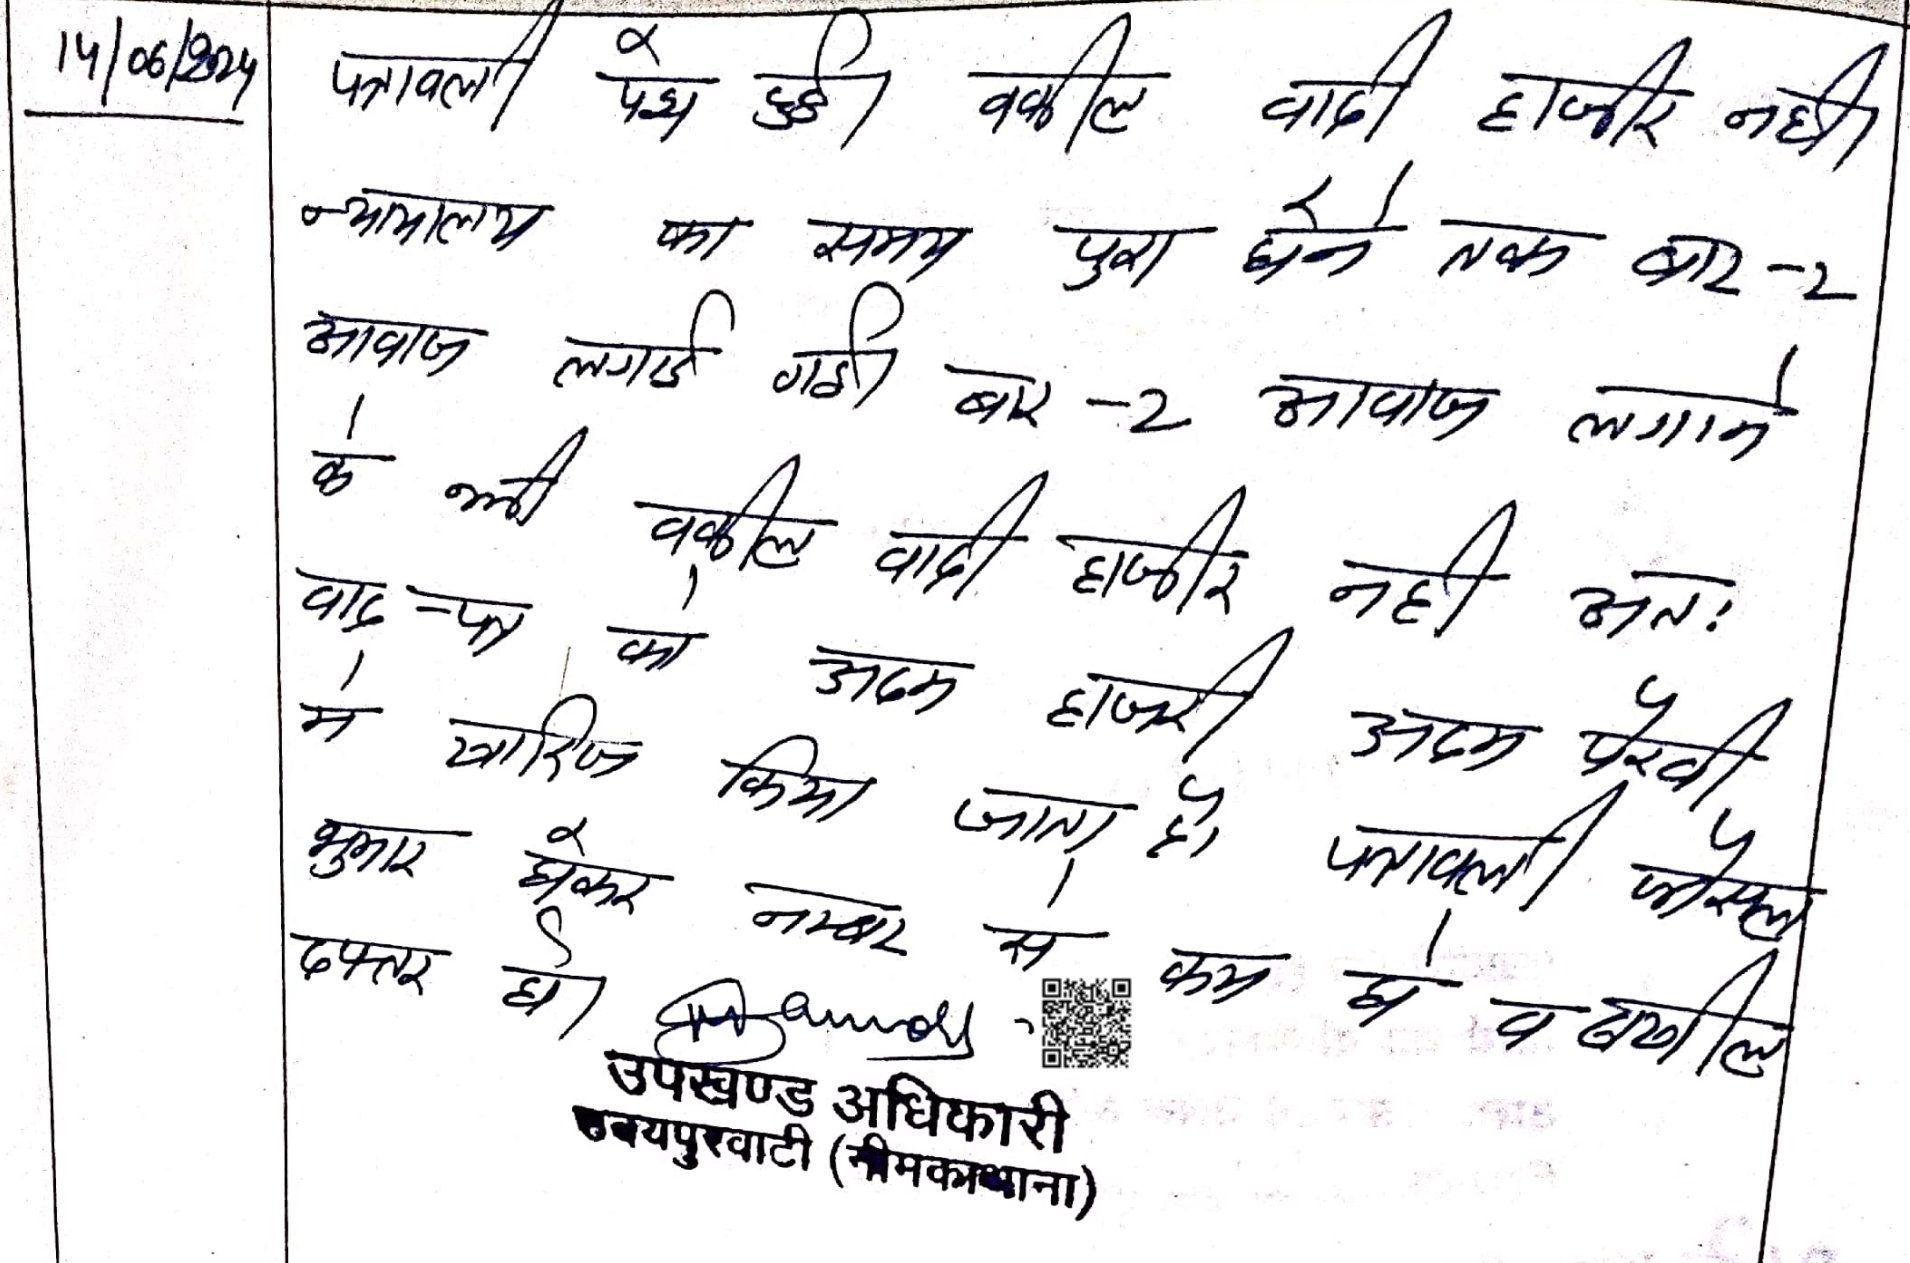 14/06/2024
पत्रावली पेश हुई। वकील वादी हाजीर नही।
न्यायालय का समय पुरा होने तक बार-2
आवाज लगाई गई। बार-2 आवाज लगाने
के भी वकील वादी हाजीर नही अतः
वाद-पत्र को अदम हाजरी अदम पैरवी
मे खारिज किया जाता है। पत्रावली फैसल
शुमार होकर नम्बर से कम हो व दाखील
दफ्तर हो।
उपखण्ड अधिकारी
उदयपुरवाटी (नीमकाथाना)